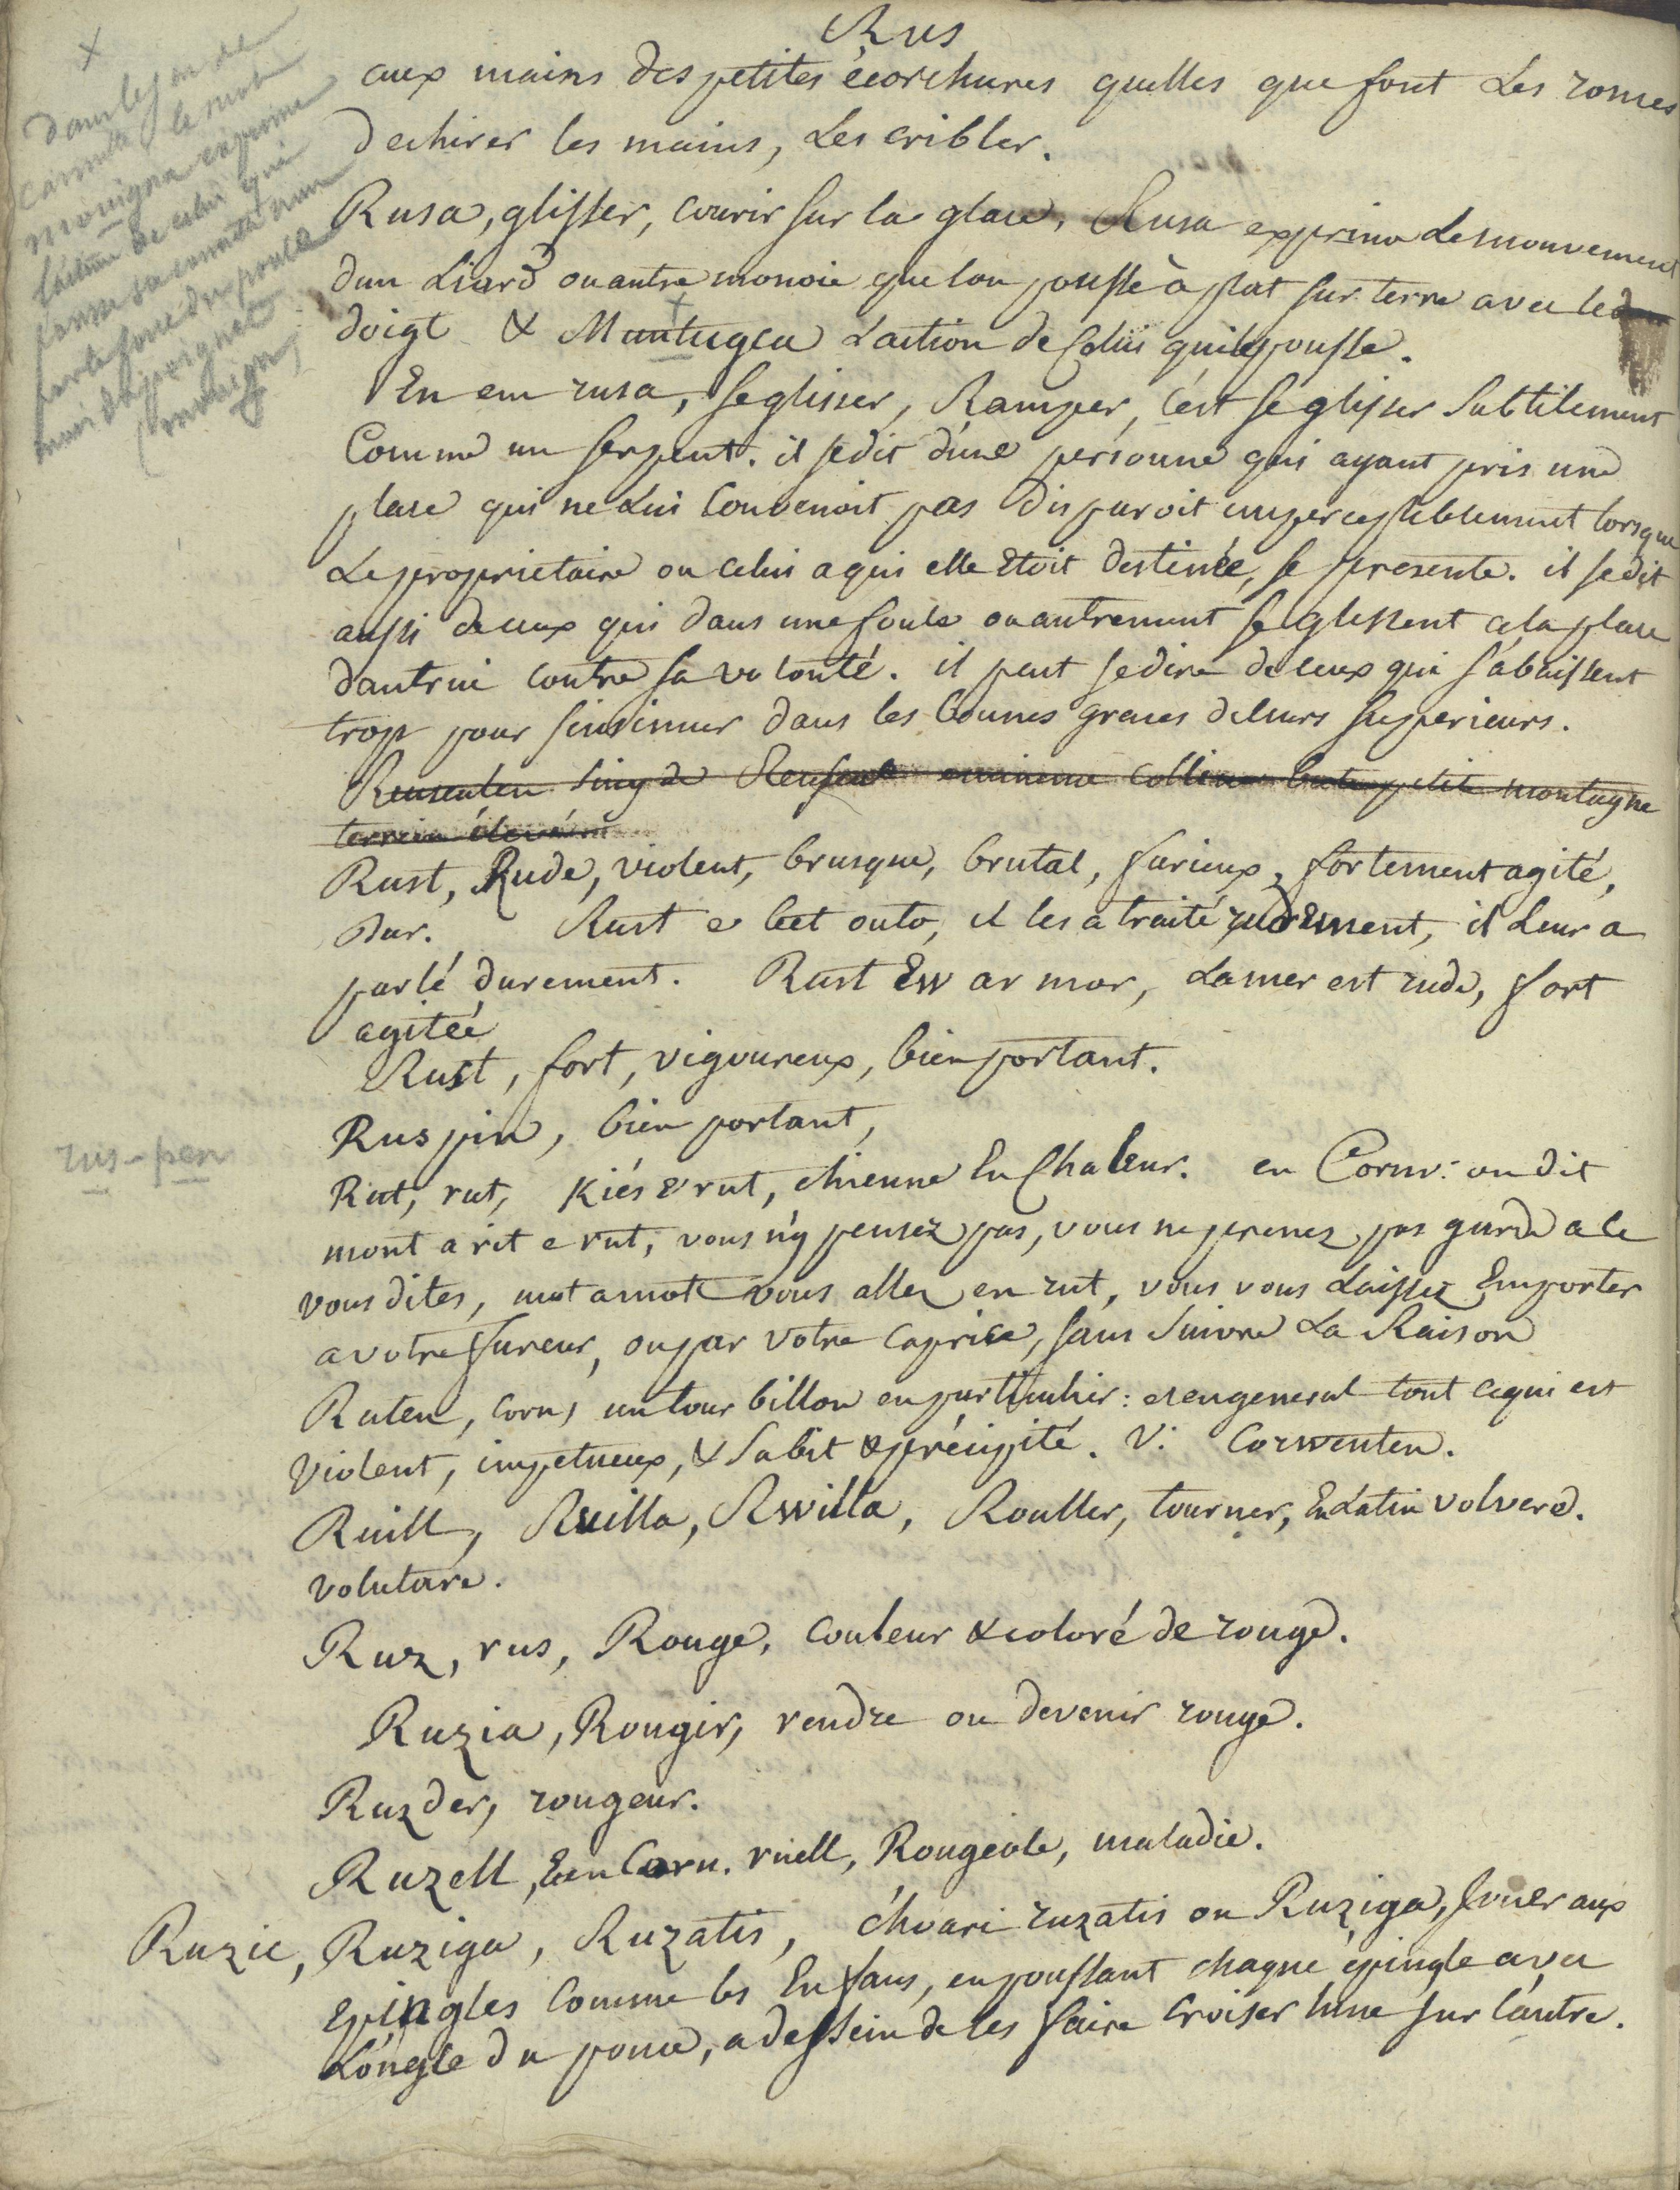 Rus
aux mains des petites écorchures quelles que font Les ronses
dechirer les mains, Les cribler.
Rusa, glisser, courir sur la glace, Rusa exprime Le mouvement
dun Liard ou autre monoie que lon pousse à plat sur terre avec le
doigt & Muntugea Laction de Celui qui le pousse.
En em rusa, se glisser, Ramper, c'est se glisser Subtilement
Comme un serpent. il se dit d'une personne qui ayant pris une
place qui ne Lui Convenoit pas disparoit imperceptiblement lorsque
Le proprietaire ou celui a qui elle Etoit destinée, se presente. il se dit
aussi de ceux qui dans une foule ou autrement se glissent a la place
dautrui contre sa volonté. il peut se dire de ceux qui s'abaissent
trop pour sinsinuer dans les bonnes graces de leurs superieurs.
Reuseulen sing de Reuseul eminence colline bute petite montagne
terrein élevé
Rust, Rude, violent, brusque, brutal, furieux, fortement agité,
Dur. Rust e bet outo, il les a traité rudement, il Leur a
parlé durement. Rust Ew ar mor, La mer est rude, fort
agitée
Rust, fort, vigoureux, bien portant.
Ruspin, bien portant,
rus-pen
Rut, rut, Kiés e rut, chienne En Chaleur. en Cornv: on dit
mont a rit e rut, vous n'y pensez pas, vous ne prenez pas garde a ce
vous dites, mot a mot vous allez en rut, vous vous Laissez Emporter
a votre fureur, ou par votre caprice, sans Suivre La Raison
Ruten, Corn, un tourbillon en particulier: et en general tout ce qui est
violent, impetueux, & Subit & précipité. V: Corwenten.
Ruill, Ruilla, Rwilla, Rouller, tourner, En Latin volvere.
volutare.
Ruz, rus, Rouge, couleur & coloré de rouge.
Ruzia, Rougir, rendre ou devenir rouge.
Ruzder, rougeur.
Ruzell, En Corn. ruell, Rougeole, maladie.
Ruzic, Ruziga, Ruzatis, c'hoari ruzatis ou Ruziga, Jouer aux
Epingles Comme les Enfans, en poussant chaque épingle avec
L'ongle du pouce, a dessein de les faire croiser lune sur l'autre.
x
dans le jeu de
canette le mot
mouigna exprime
l'action de celui qui
pousse sa canette
par la force du pouce